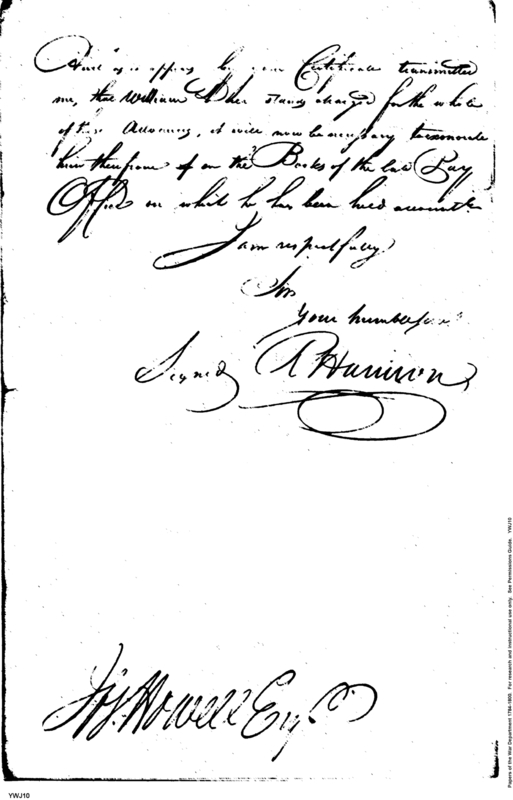 And as it appears by your Certificate transmitted
me, that William stands charged for the whole
of these Advances, it will now be necessary to exonerate
him therefrom on the Books of the late Pay
Office on which he has been held accountable
I am respectfully
Sir
Your humble Servt
Signed R Harrison
Jos. Howell Esqr
YWJ10
Papers of the War Department 1784-1800. For research and instructional use only. See Permissions Guide. YWJ10